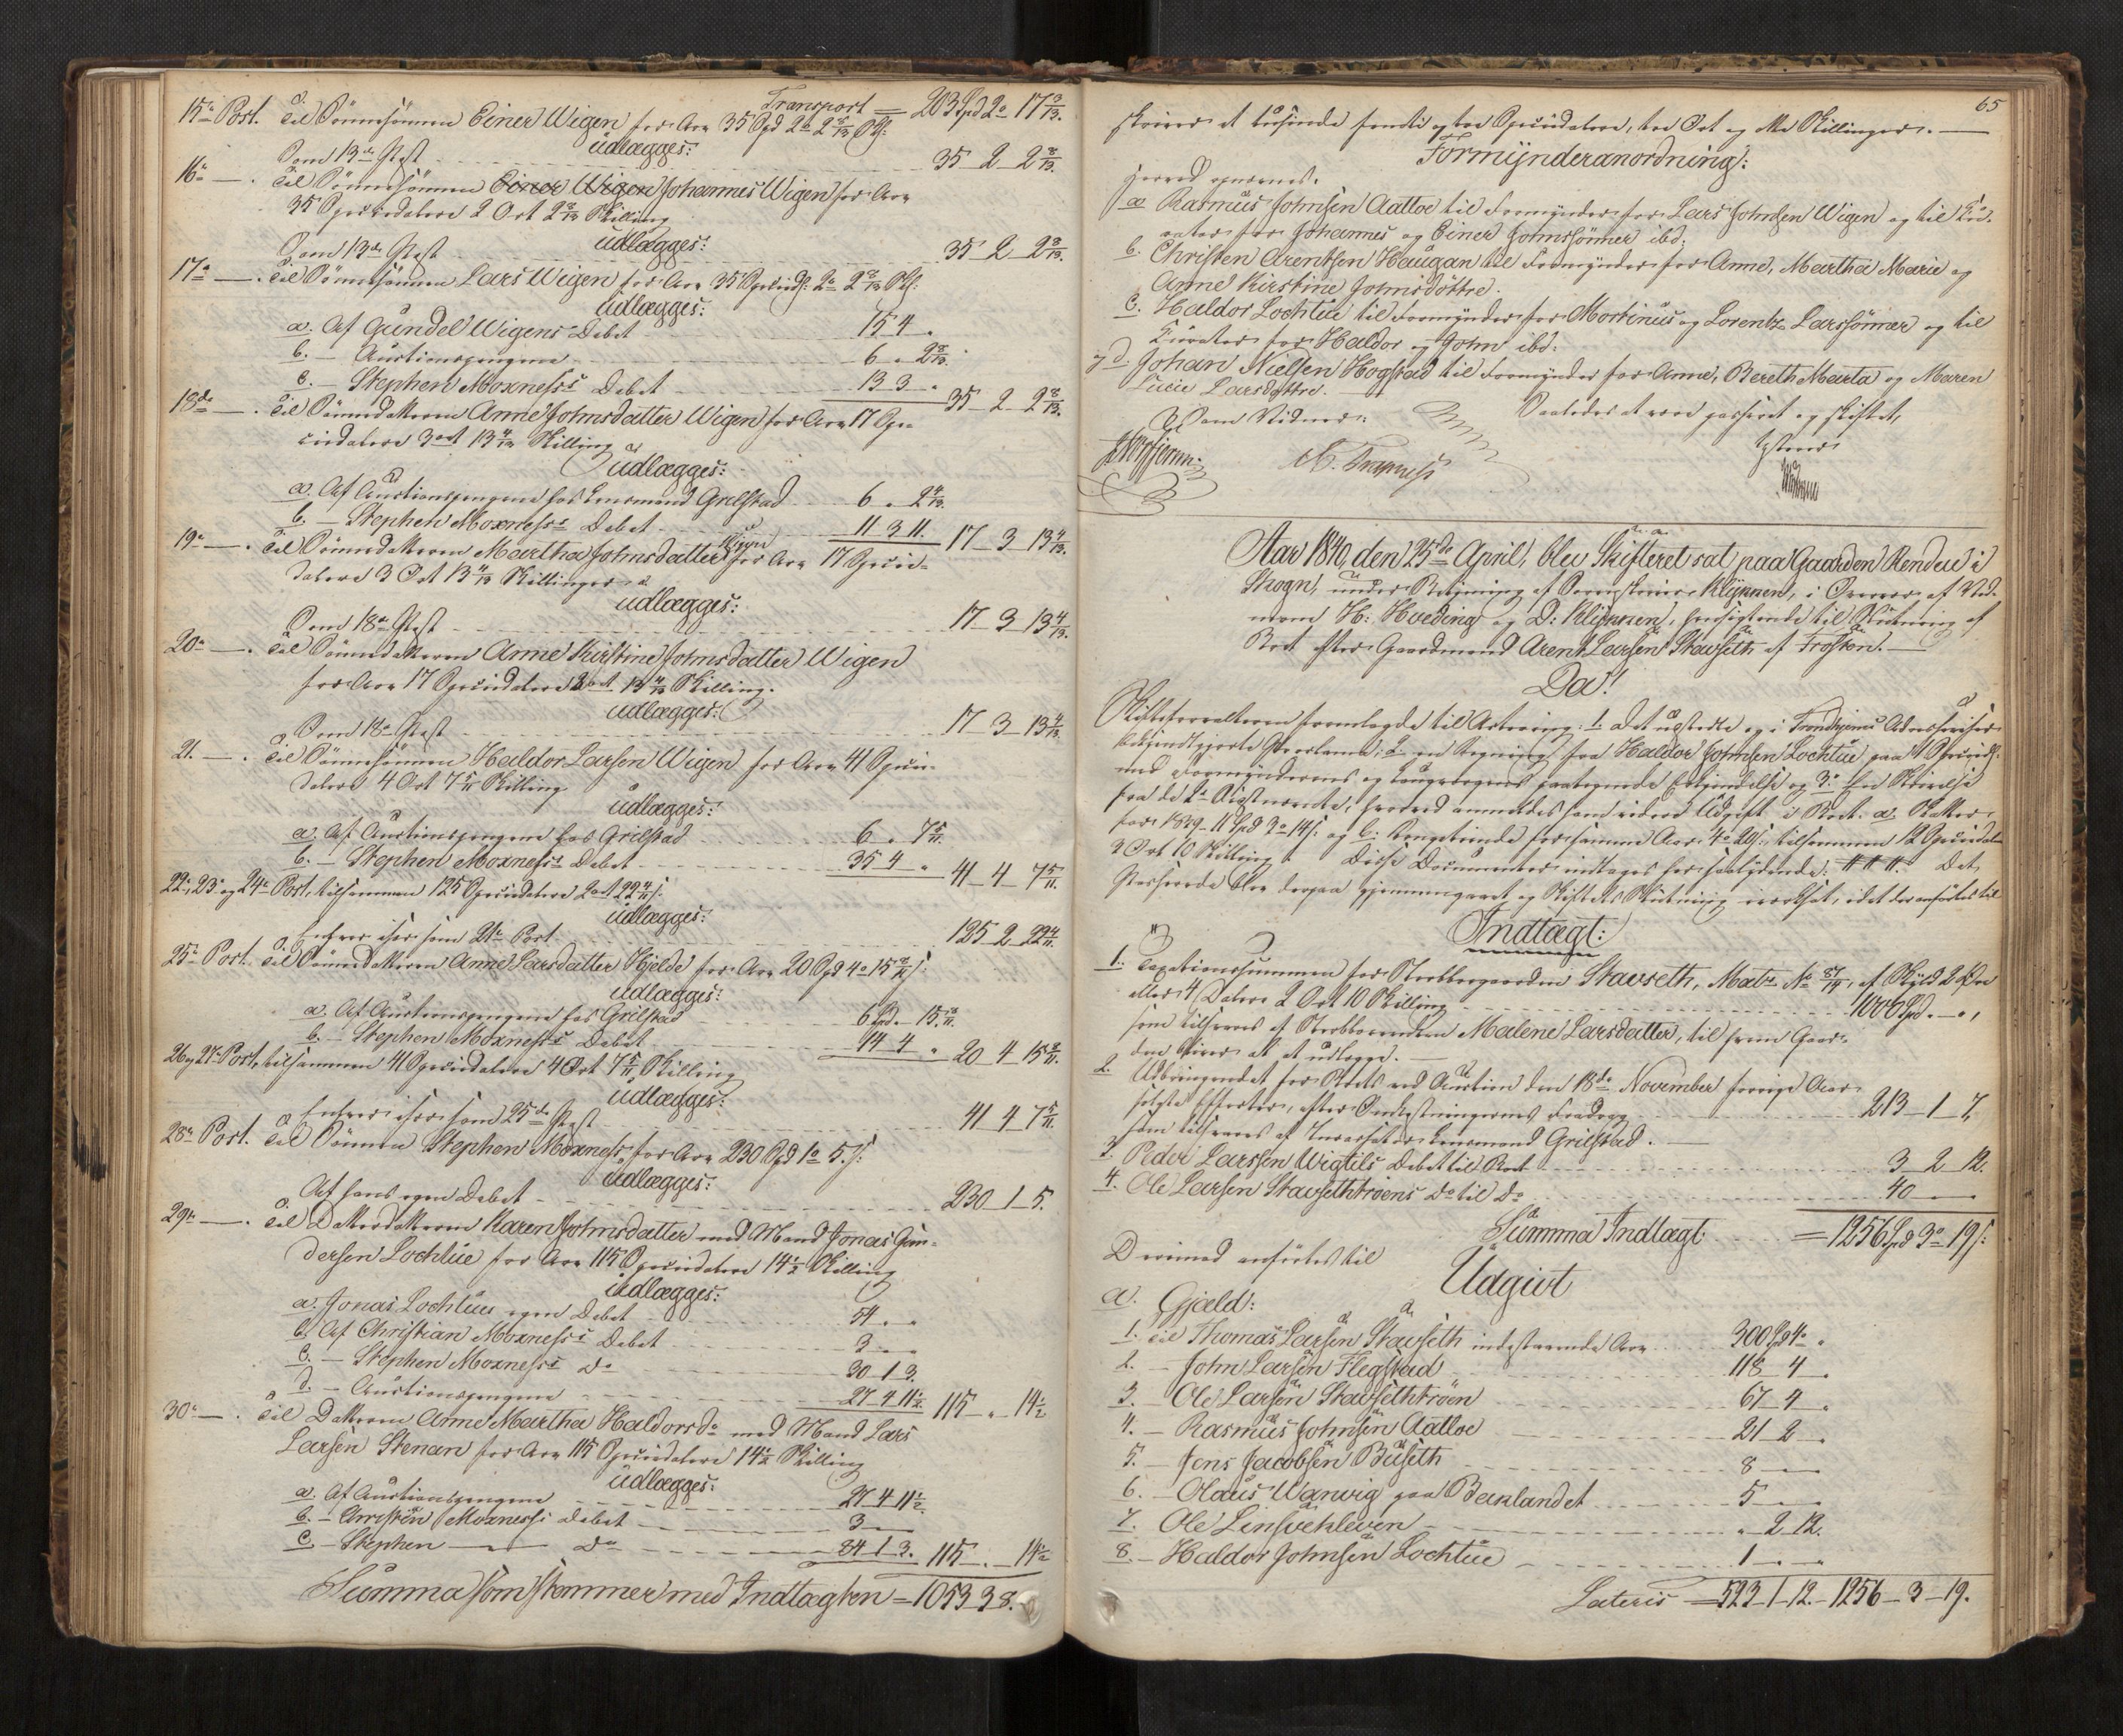 Transport = 203 Spd 2o 17 3/13.
15de Post. Til Sönnesönnen Einer Wigen for Arv 35 Spd 2o 2 8/13 Sk:
udlægges:
Som 13de Post 35 2 2 8/13.
16de —. Til Sönnesönnen Einer Wigen Johannes Wigen for Arv
35 Speciedalere 2 Ort 2 8/13 Skilling
udlægges:
Som 13de Post 35 2 2 8/13.
17de —. Til Sönnesönnen Lars Wigen for Arv 35 Specied: 2o 2 8/13 Sk:
udlægges:
a. Af Gundel Wigens Debet 15 4 „
b. — Auctionspengene 6 „ 2 8/13.
c. — Stephen Moxness's Debet 13 3 „ 35 2 2 8/13.
18de —. Til Sönnedatteren Anne Johnsdatter Wigen for Arv 17 Spe-
ciedalere 3 Ort 13 4/13 Skilling
udlægges:
a. Af Auctionspengene hos Lensmand Grilstad 6 „ 2 4/13.
b. — Stephen Moxness's Debet 11 3 11. 17 3 13 4/13.
19de —. Til Sönnedatteren Martha Johnsdatter Wigen for Arv 17 Specie-
dalere 3 Ort 13 4/13 Skillinger
udlægges:
Som 18de Post 17 3 13 4/13.
20de —. Til Sönnedatteren Anne Kirstine Johnsdatter Wigen
for Arv 17 Speciedalere 3 Ort 13 4/13 Skilling.
udlægges:
Som 18de Post 17 3 13 4/13.
21. —. Til Sönnesönnen Haldor Larsen Wigen for Arv 41 Specie-
dalere 4 Ort 7 5/11 Skilling
udlægges:
a. Af Auctionspengene hos Grilstad 6 „ 7 5/11.
b. — Stephen Moxness's Debet 35 4 „ 41 4 7 5/11.
22de, 23de og 24de Post, tilsammen 125 Speciedalere 2 Ort 22 4/11 s:
udlægges:
Enhver især som 21de Post 125 2 22 4/11.
25de Post. Til Sönnedatteren Anne Larsdatter Hjelde for Arv 20 Spd 4o 15 8/11 s:
udlægges:
a. Af Auctionspengene hos Grilstad 6 Spd „ 15 8/11.
b. — Stephen Moxness's Debet 14 4 „ 20 4 15 8/11.
26 og 27de Post, tilsammen 41 Speciedalere 4 Ort 7 5/11 Skilling
udlægges:
Enhver især som 25de Post 41 4 7 5/11.
28de Post. Til Sönnen Stephen Moxness, for Arv 230 Spd 1o 5 s:
udlægges:
Af hans egen Debet 230 1 5.
29de —. Til Datterdatteren Karen Johnsdatter med Mand Jonas Gun-
dersen Lochtue for Arv 115 Speciedalere 14 1/2 Skilling
udlægges:
a. Jonas Lochtues egen Debet 54 „ „
b. Af Christian Moxness's Debet 3 „ „
c. — Stephen Moxness's Do 30 1 3.
d. — Auctionspengene 27 4 11 1/2 115 „ 14 1/2
30de —. Til Datteren Anne Martha Haldorsdr med Mand Lars
Larsen Stenan for Arv 115 Speciedalere 14 1/2 Skilling
udlægges:
a. Af Auctionspengene 27 4 11 1/2.
b. — Moxness's Debet 3 — —
c. — Stephen — Do 84 1 3. 115 . 14 1/2
Summa som stemmer med Indtægten = 1053 3 8.
65
skriver et tusinde femti og tre Speciedalere, tre Ort og otte Skillinger. —
Formynderanordning:
Herved opnævnes.
a Rasmus Johnsen Aatloe til Formynder for Lars Johnsen Wigen og til Cu-
rator for Johannes og Einer Johnssönner ibd:
b. Christen Arentsen Haugan til Formynder for Anne, Martha Marie og
Anne Kirstine Johnsdöttre.
c. Haldor Lochtue til Formynder for Mortinus og Lorentz Larssönner og til
Curator for Haldor og John ibd:
og d. Johan Nielsen Hogstad til Formynder for Anne, Bereth Marta og Maren
Lucie Larsdöttre.
Som Vidner: Saaledes at være passeret og skiftet,
tilstaaer
Aar 1840, den 25de April, blev Skifteret sat paa Gaarden Renden i
Skogn, under Betjening af Sorenskriver Klykken, i Overvær af Vid-
nerne H: Hveding og D: Klykken, henhigtende til Slutning af
Boet efter Gaardmand Arent Larsen Stavseth af Frosten. —
Da!
Skifteforvalteren fremlagde til Actering: 1. Det udstedte og i Trondhjems Adresseavis
bekjendtgjorte Proclama; 2. en Regning fra Haldor Johnsen Lochtue paa 1 Specied:
med Formynderens og Laugværgens paategnede Erkjendelse og 3. En Skrivelse
fra de 2de Auctmænd, hvorved anmeldes som videre Udgift i Boet: a. Skatter
for 1839 11 Spd 3o 14 s: og b: Kongetiende for samme Aar 4o 20 s:, tilsammen 12 Speciedaler
2 Ort 10 Skilling. Disse Documenter indtages her saalydende: # # #. Det
Passerede blev derpaa gjennemgaaet og Skiftets Slutning iværksat, idet der anförtes til
Indtægt:
1. Taxationssummen for Stervboegaarden Stavseth, Matr. No 87/14, af Skyld 2 Öre
eller 4 Daler 2 Ort 10 Skilling 1000 Spd. — „
som tilsvares af Stervboeenken Malene Larsdatter, til hvem Gaar-
den bliver at udlægge. —
2. Udbringendet for Boets ved Auction den 18de November forrige Aar
solgte Effecter, efter Omkostningernes Fradrag 213 — 1 7,
som tilsvares af Incassator Lensmand Grilstad. —
3. Peder Larssen Wigtils Debet til Boet 3 2 12.
4. Ole Larsen Stavsethtrøens Do til Do 40 — —
Summa Indtægt = 1256 Spd 3o 19 s:
Derimod anförtes til
Udgivt
a. Gjæld:
1. Til Thomas Larsen Stavseth indestaaende Arv 300 Spd 4o „
2. — John Larsen Flegstad 118 4 „
3. — Ole Larsen Stavsethtrøen 67 4 „
4. — Rasmus Johnsen Aatloe 21 2 „
5. — Jens Jacobsen Buseth 8 — —
6. — Olaus Warwig paa Baklandet 5 — —
7. Ole Linsvehleven „ 2 12.
8. — Haldor Johnsen Lochtue 1 — —
Lateris = 523 — 1 — 12. — 1256 — 3 — 19.